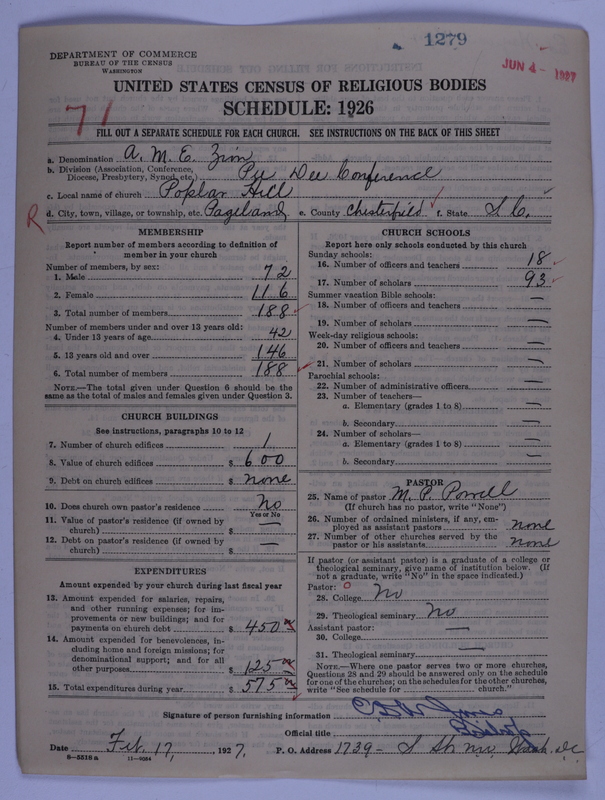 1279
JUN 4 - 1927
DEPARTMENT OF COMMERCE
BUREAU OF THE CENSUS
WASHINGTON
UNITED STATES CENSUS OF RELIGIOUS BODIES
SCHEDULE: 1926
71
FILL OUT A SEPARATE SCHEDULE FOR EACH CHURCH. SEE INSTRUCTIONS ON THE BACK OF THIS SHEET
a. Denomination A. M. E. Zion
b. Division (Association, Conference, Diocese, Presbytery, Synod, etc.) Pee Dee Conference
c. Local name of church Poplar Hill
R d. City, town, village, or township, etc. Pageland e. County Chesterfield f. State S. C.
MEMBERSHIP
Report number of members according to definition of member in your church
Number of members, by sex:
1. Male 72
2. Female 116
3. Total number of members 188
Number of members under and over 13 years old:
4. Under 13 years of age 42
5. 13 years old and over 146
6. Total number of members 188
NOTE.—The total given under Question 6 should be the same as the total of males and females given under Question 3.
CHURCH BUILDINGS
See instructions, paragraphs 10 to 12
7. Number of church edifices 1
8. Value of church edifices $ 600
9. Debt on church edifices $ none
10. Does church own pastor's residence No
Yes or No
11. Value of pastor's residence (if owned by church) $ —
12. Debt on pastor's residence (if owned by church) $ —
EXPENDITURES
Amount expended by your church during last fiscal year
13. Amount expended for salaries, repairs, and other running expenses; for improvements or new buildings; and for payments on church debt $ 450
14. Amount expended for benevolences, including home and foreign missions; for denominational support; and for all other purposes $ 125
15. Total expenditures during year $ 575
CHURCH SCHOOLS
Report here only schools conducted by this church
Sunday schools:
16. Number of officers and teachers 18
17. Number of scholars 93
Summer vacation Bible schools:
18. Number of officers and teachers —
19. Number of scholars —
Week-day religious schools:
20. Number of officers and teachers —
21. Number of scholars —
Parochial schools:
22. Number of administrative officers —
23. Number of teachers—
a. Elementary (grades 1 to 8) —
b. Secondary —
24. Number of scholars—
a. Elementary (grades 1 to 8) —
b. Secondary —
PASTOR
25. Name of pastor M. P. Powell
(If church has no pastor, write "None")
26. Number of ordained ministers, if any, employed as assistant pastors none
27. Number of other churches served by the pastor or his assistants none
If pastor (or assistant pastor) is a graduate of a college or theological seminary, give name of institution below. (If not a graduate, write "No" in the space indicated.)
Pastor: O
28. College No
29. Theological seminary No
Assistant pastor: —
30. College
31. Theological seminary —
NOTE.—Where one pastor serves two or more churches, Questions 28 and 29 should be answered only on the schedule for one of the churches; on the schedules for the other churches, write "See schedule for church."
Signature of person furnishing information
Official title Bishop
Date Feb. 17, 1927. P. O. Address 1739 - S St. NW. Wash. DC
8—5518a 11—9064 1